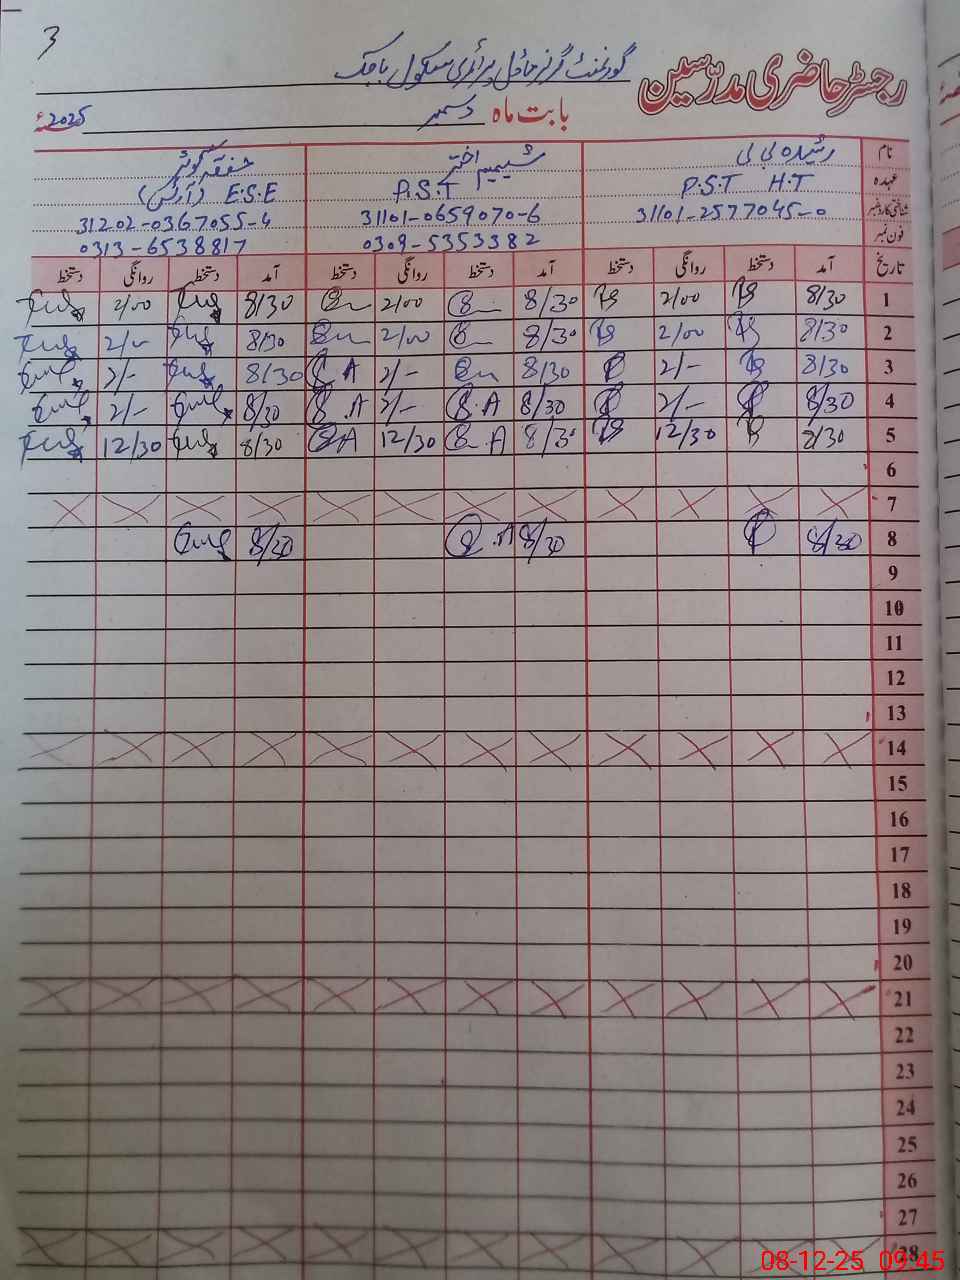 3
رجسٹر حاضری مدرسین
گورنمنٹ گرلز ماڈل پرائمری سکول
بابت ماہ دسمبر 2025ء
نام رشیدہ بی بی شمیم اختر شفقہ کوثر
عہدہ P.S.T H.T P.S.T E.S.E (آرٹس)
شناختی کارڈ نمبر 31101-2577045-0 31101-0659070-6 31202-0367055-4
فون نمبر 0309-5353382 0313-6538817
تاریخ آمد دستخط روانگی دستخط آمد دستخط روانگی دستخط آمد دستخط روانگی دستخط
1 8/30 2/00 8/30 2/00 8/30 2/00
2 8/30 2/00 8/30 2/00 8/30 2/-
3 8/30 2/- 8/30 2/- A 8/30 2/-
4 8/30 2/- 8/30 A 2/- A 8/30 2/-
5 8/30 12/30 8/30 A 12/30 A 8/30 12/30
6
7
8 8/30 8/30 A 8/30
9
10
11
12
13
14
15
16
17
18
19
20
21
22
23
24
25
26
27
28
08-12-25 09:45